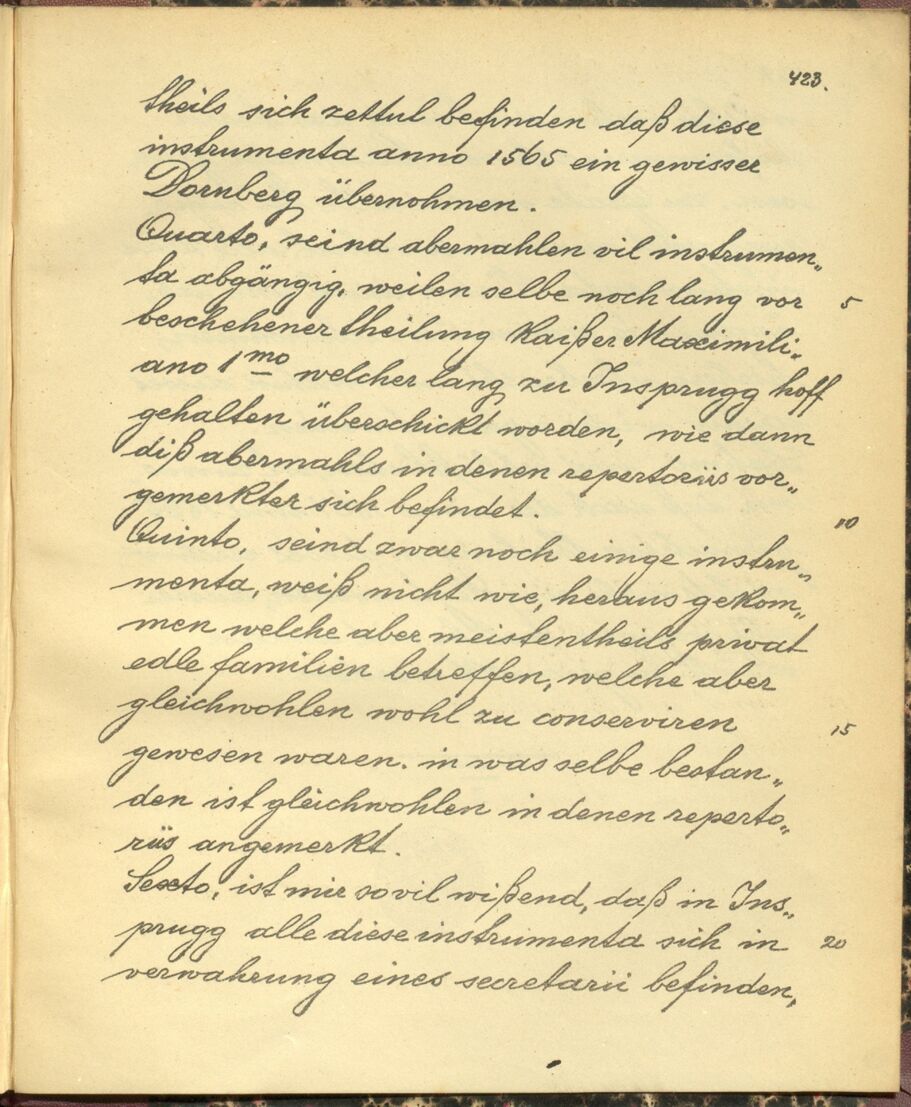 423.
theils sich zettul befinden daß diese
instrumenta anno 1565 ein gewisser
Dornberg übernohmen.
Quarto, seind abermahlen vil instrumen„
ta abgängig, weilen selbe noch lang vor 5
beschehener theilung Kaißer Maximili„
ano 1mo welcher lang zu Insprugg hoff
gehalten überschickt worden, wie dann
diß abermahls in denen repertoriis vor„
gemerkter sich befindet. 10
Quinto, seind zwar noch einige instru„
menta, weiß nicht wie, heraus gekom„
men welche aber meistentheils privat
edle familien betreffen, welche aber
gleichwohlen wohl zu conserviren 15
gewesen waren. in was selbe bestan„
den ist gleichwohlen in denen reperto„
riis angemerkt.
Sexto, ist mir sovil wißend, daß in Ins„
prugg alle diese instrumenta sich in 20
verwahrung eines secretarii befinden,